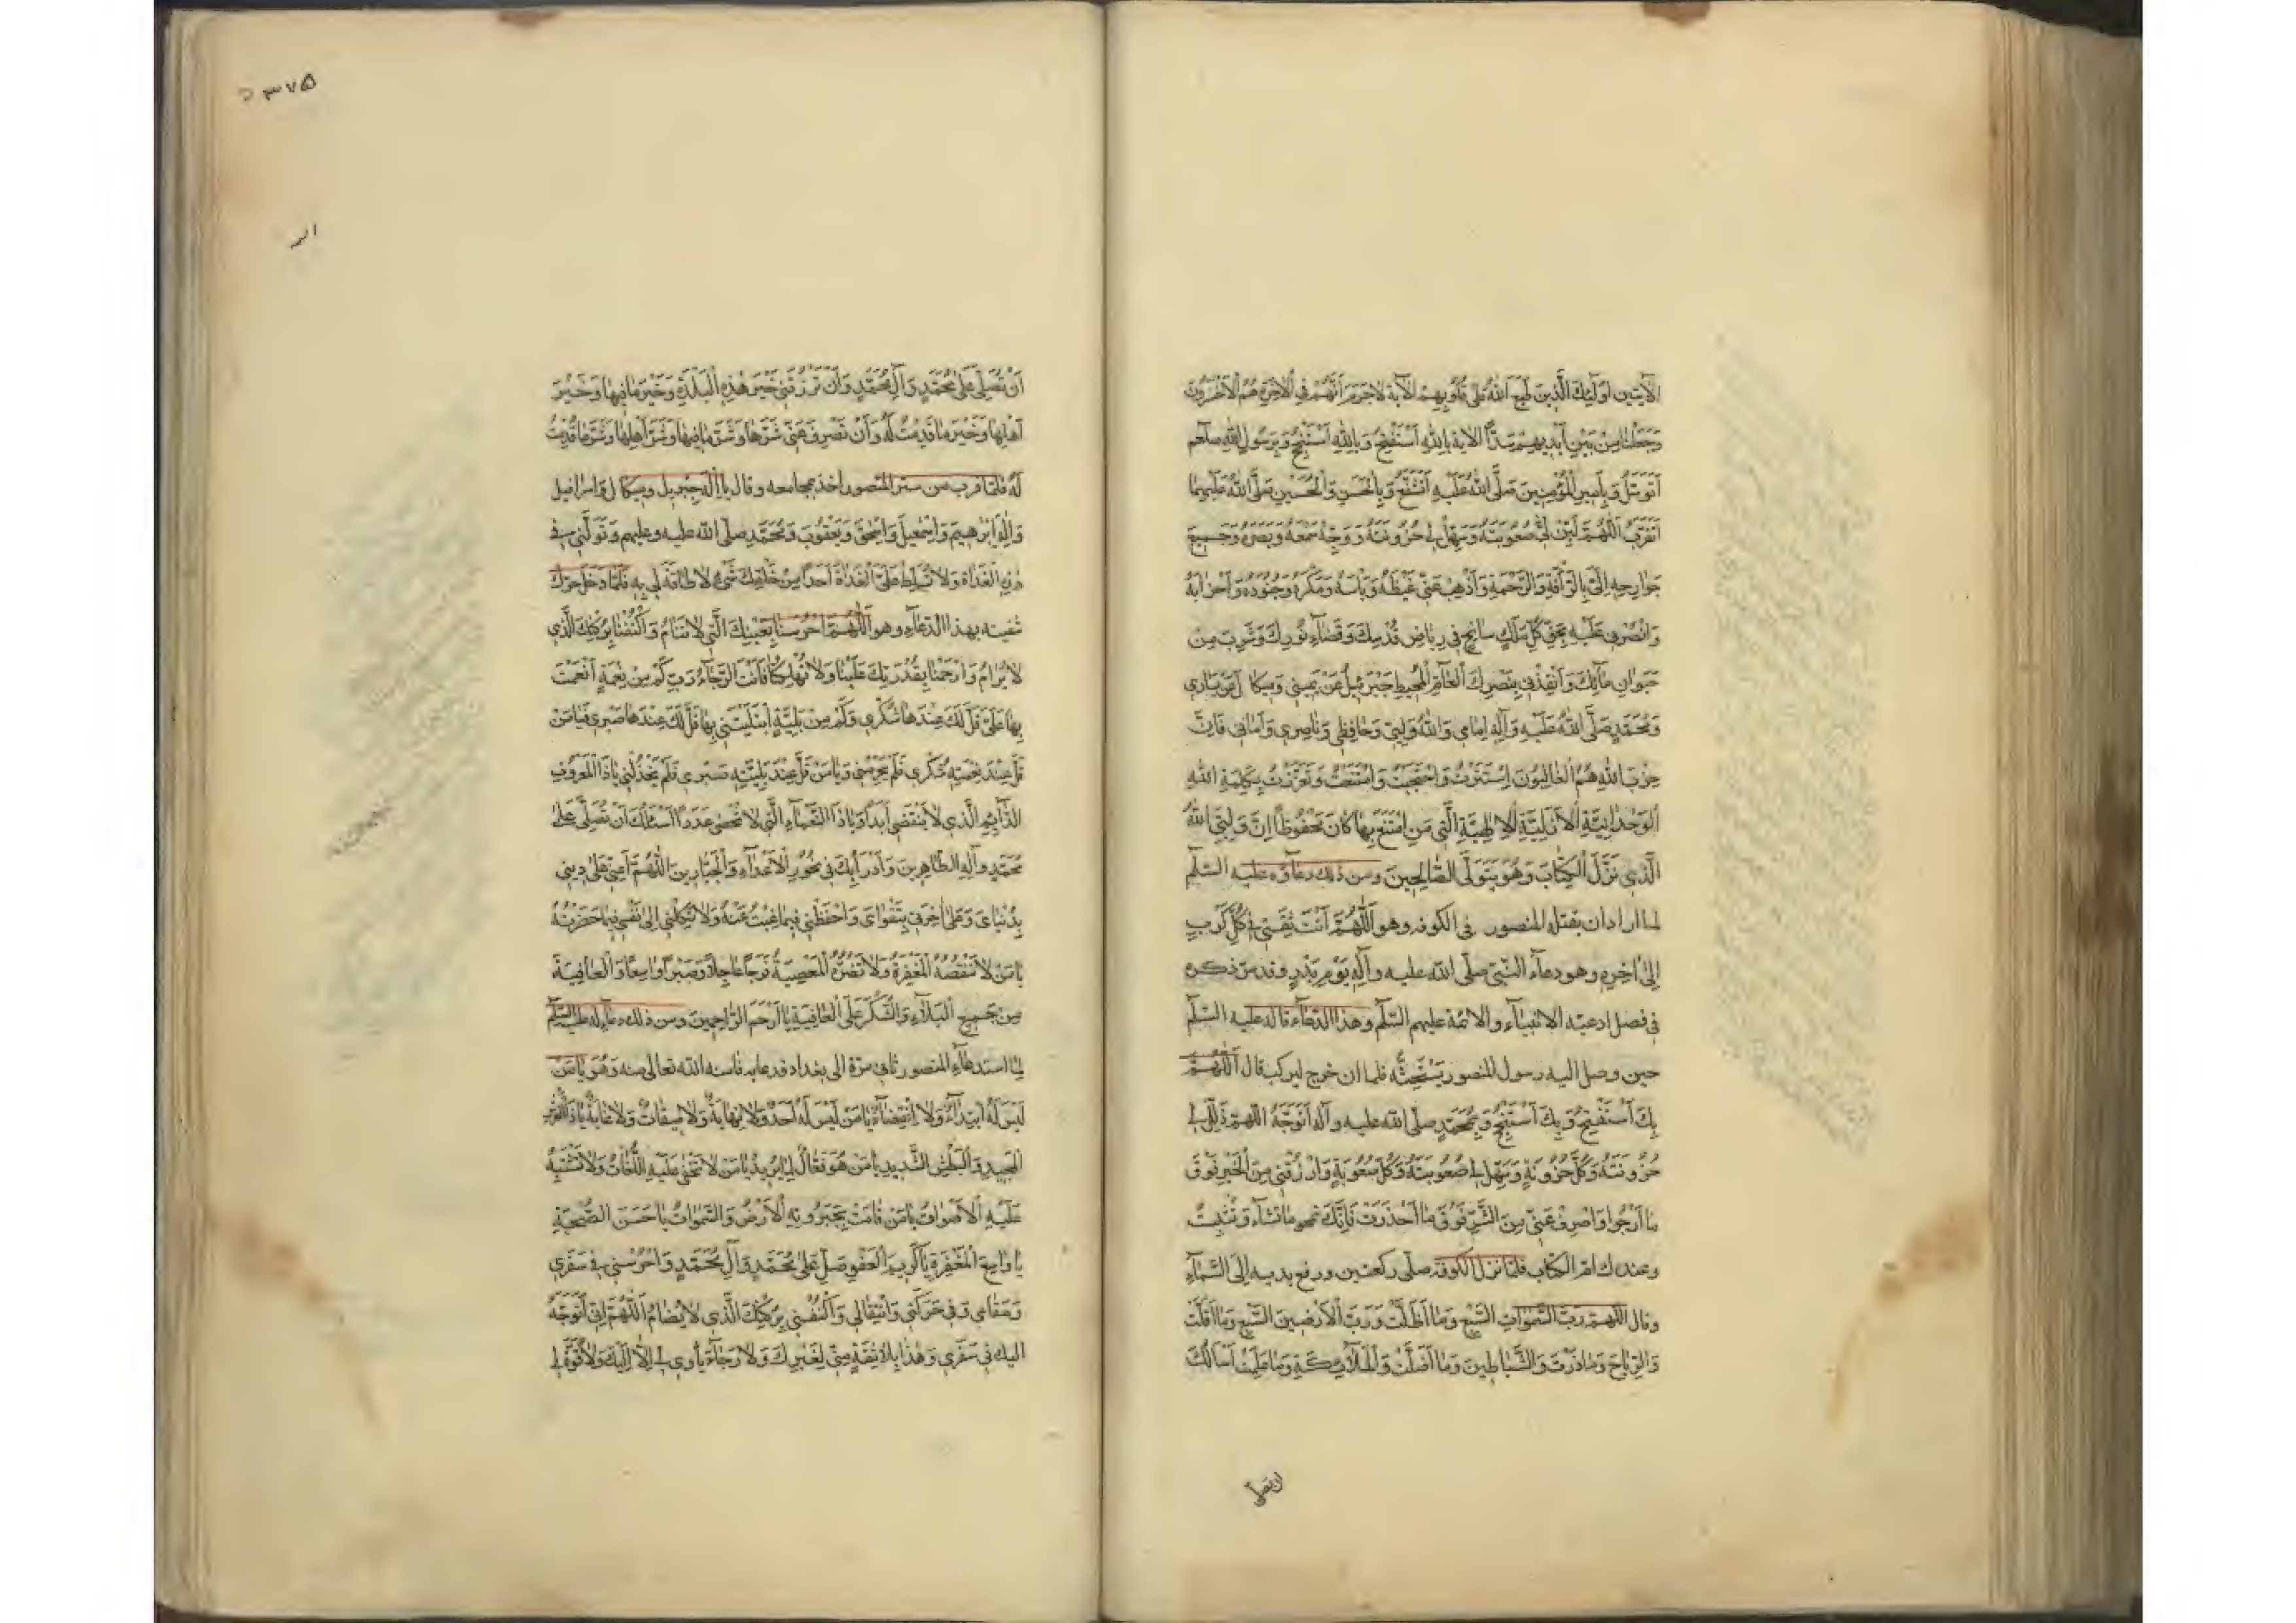 الآيتين اولٰئك الَّذين طَبَعَ اللهُ عَلٰى قُلُوبِهِمْ الآية لاجَرَمَ اَنَّهُمْ فِى الْآخِرَةِ هُمُ الْاَخْسَرُونَ
وَجَعَلْنا مِنْ بَيْنِ اَيْديهِمْ سَدًّا الآية بِاللهِ اَسْتَفْتِحُ وَبِاللهِ اَسْتَنْجِحُ وَبِرَسُولِ اللهِ صلعم
اَتَوَسَّلُ وَبِاَميرِ الْمُؤْمِنينَ صَلَّى اللهُ عَلَيْهِ اَتَشَفَّعُ وَبِالْحَسَنِ وَالْحُسَيْنِ صَلَّى اللهُ عَلَيْهِما
اَتَقَرَّبُ اَللّٰهُمَّ لَيِّنْ لى صُعُوبَتَهُ وَسَهِّلْ لى حُزُونَتَهُ وَوَجِّهْ سَمْعَهُ وَبَصَرَهُ وَجَميعَ
جَوارِحِهِ اِلَىَّ بِالرَّأْفَةِ وَالرَّحْمَةِ وَاَذْهِبْ عَنّى غَيْظَهُ وَبَأْسَهُ وَمَكْرَهُ وَجُنُودَهُ وَاَحْزابَهُ
وَانْصُرْنى عَلَيْهِ بِحَقِّ كُلِّ مَلَكٍ سائِحٍ فى رِياضِ قُدْسِكَ وَفَضاءِ نُورِكَ وَشَرِبَ مِنْ
حَيَوانِ مائِكَ وَاَنْقِذْنى بِنَصْرِكَ الْعامِّ الْمُحيطِ جَبْرَئيلُ عَنْ يَمينى وَميكالُ عَنْ يَسارى
وَمُحَمَّدٍ صَلَّى اللهُ عَلَيْهِ وَآلِهِ اِمامى وَاللهُ وَلِيّى وَحافِظى وَناصِرى وَاَمانى فَاِنَّ
حِزْبَ اللهِ هُمُ الْغالِبُونَ اِسْتَتَرْتُ وَاحْتَجَبْتُ وَامْتَنَعْتُ وَتَعَزَّزْتُ بِكَلِمَةِ اللهِ
الْوَحْدانِيَّةِ الْاَزَلِيَّةِ الْاِلٰهِيَّةِ الَّتى مَنِ امْتَنَعَ بِها كانَ مَحْفُوظًا اِنَّ وَلِيِّىَ اللهُ
الَّذى نَزَّلَ الْكِتابَ وَهُوَ يَتَوَلَّى الصّالِحينَ ومن ذلك دعاؤه عليه السّلم
لما اراد ان يقتله المنصور فى الكوفه وهو اَللّٰهُمَّ اَنْتَ ثِقَتى فى كُلِّ كَرْبٍ
اِلٰى آخِرِهِ وهو دعاء النّبىّ صلّى الله عليه وآلِهِ يَوْمَ بَدْرٍ وقد مرّ ذكره
فى فصل ادعية الانبياء والائمّة عليهم السّلم وهذا الدّعاء قاله عليه السّلم
حين وصل اليه رسول المنصور يَسْتَحِثُّه فلما ان خرج ليركب قال اَللّٰهُمَّ
بِكَ اَسْتَفْتِحُ وَبِكَ اَسْتَنْجِحُ وَبِمُحَمَّدٍ صلّى الله عليه وآله اَتَوَجَّهُ اللّهمّ ذَلِّلْ لى
حُزُونَتَهُ وَكُلَّ حُزُونَةٍ وَسَهِّلْ لى صُعُوبَتَهُ وَكُلَّ صُعُوبَةٍ وَارْزُقْنى مِنَ الْخَيْرِ فَوْقَ
ما اَرْجُوا وَاصْرِفْ عَنّى مِنَ الشَّرِّ فَوْقَ ما اَحْذَرُ فَاِنَّكَ تمحو ما تَشاءُ وَتُثْبِتُ
وعندك امّ الكتاب فلمّا نزل الكوفه صلّى ركعتين ورفع يديه اِلَى السَّماءِ
وقال اللّهمّ رَبَّ السَّمٰواتِ السَّبْعِ وَما اَظَلَّتْ وَرَبَّ الْاَرَضينَ السَّبْعِ وَما اَقَلَّتْ
وَالرِّياحَ وَما ذَرَتْ وَالشَّياطينَ وَما اَضَلَّتْ وَالْمَلائِكَةِ وَما عَلِمَتْ اَسْأَلُكَ
ان تصلى
۳۷۵
اَنْ تُصَلِّىَ عَلٰى مُحَمَّدٍ وَآلِ مُحَمَّدٍ وَاَنْ تَرْزُقَنى خَيْرَ هٰذِهِ الْبَلْدَةِ وَخَيْرَ ما فيها وَخَيْرَ
اَهْلِها وَخَيْرَ ما قَدِمْتُ لَهُ وَاَنْ تَصْرِفَ عَنّى شَرَّها وَشَرَّ ما فيها وَشَرَّ اَهْلِها وَشَرَّ ما قَدِمْتُ
لَهُ فلمّا قرب من ستر المنصور اخذ بمجامعه وقال يا اِلٰهَ جبريل وميكال واسرافيل
وَاِلٰهَ اِبْرٰهيمَ وَاِسْمٰعيلَ وَاِسْحٰقَ وَيَعْقُوبَ وَمُحَمَّدٍ صلّى الله عليه وعليهم وَتَوَلَّنى فى
هٰذِهِ الْغَداةِ وَلا تُسَلِّطْ عَلَىَّ الْغَداةَ اَحَدًا مِنْ خَلْقِكَ بشىء لا طاقَةَ لى بِهِ فلمّا دخل حرّك
شفتيه بهذا الدّعاء وهو اَللّٰهُمَّ احْرُسْنا بِعَيْنِكَ الَّتى لا تَنامُ وَاكْنُفْنا بِرُكْنِكَ الَّذى
لا يُرامُ وَارْحَمْنا بِقُدْرَتِكَ عَلَيْنا وَلا تُهْلِكْنا فَاَنْتَ الرَّجاءُ رَبِّ كَمْ مِنْ نِعْمَةٍ اَنْعَمْتَ
بِها عَلَىَّ قَلَّ لَكَ عِنْدَها شُكْرى وَكَمْ مِنْ بَلِيَّةٍ ابْتَلَيْتَنى بِها قَلَّ لَكَ عِنْدَها صَبْرى فَيا مَنْ
قَلَّ عِنْدَ نِعْمَتِهِ شُكْرى فَلَمْ يَحْرِمْنى وَيا مَنْ قَلَّ عِنْدَ بَلِيَّتِهِ صَبْرى فَلَمْ يَخْذُلْنى يا ذَا الْمَعْرُوفِ
الدّائِمِ الَّذى لا يَنْقَضى اَبَدًا وَيا ذَا النَّعْماءِ الَّتى لا تُحْصٰى عَدَدًا اَسْئَلُكَ اَنْ تُصَلِّىَ عَلٰى
مُحَمَّدٍ وآلِهِ الطّاهِرينَ وَاَدْرَاُ بِكَ فى نُحُورِ الْاَعْداءِ وَالْجَبّارينَ اَللّٰهُمَّ اَعِنّى عَلٰى دينى
بِدُنْياىَ وَعَلٰى آخِرَتى بِتَقْواىَ وَاحْفَظْنى فيما غِبْتُ عَنْهُ وَلا تَكِلْنى اِلٰى نَفْسى فيما حَضَرْتُهُ
يا مَنْ لا تَنْقُصُهُ الْمَغْفِرَةُ وَلا تَضُرُّهُ الْمَعْصِيَةُ فَرَجًا عاجِلًا وَصَبْرًا واسِعًا وَالْعافِيَةَ
مِنْ جَميعِ الْبَلاءِ وَالشُّكْرَ عَلَى الْعافِيَةِ يا اَرْحَمَ الرّاحِمينَ ومن ذلك دعاء له عليه السّلم
لمّا استدعاه المنصور ثانى مرّة الى بغداد فدعا به فامنه الله تعالى منه وَهُوَ يا مَنْ
لَيْسَ لَهُ ابْتِداءٌ وَلا انْقِضاءٌ يا مَنْ لَيْسَ لَهُ اَمَدٌ وَلا نِهايَةٌ وَلا ميقاتٌ وَلا غايَةٌ يا ذَا الْعَرْشِ
الْمَجيدِ وَالْبَطْشِ الشَّديدِ يا مَنْ هُوَ فَعّالٌ لِما يُريدُ يا مَنْ لا تَخْفٰى عَلَيْهِ اللُّغاتُ وَلا تَشْتَبِهُ
عَلَيْهِ الْاَصْواتُ يا مَنْ قامَتْ بِجَبَرُوتِهِ الْاَرْضُ وَالسَّمٰواتُ يا حَسَنَ الصُّحْبَةِ
يا واسِعَ الْمَغْفِرَةِ يا كَريمَ الْعَفْوِ صَلِّ عَلٰى مُحَمَّدٍ وَآلِ مُحَمَّدٍ وَاحْرُسْنى فى سَفَرى
وَمَقامى وَفى حَرَكَتى وَانْتِقالى وَاكْنُفْنى بِرُكْنِكَ الَّذى لا يُضامُ اَللّٰهُمَّ اِنّى اَتَوَجَّهُ
اليك فى سَفَرى وَهٰذا بِلا ثِقَةٍ مِنّى لِغَيْرِكَ وَلا رَجاءٍ يَأْوى بى اِلّا اِلَيْكَ وَلا قُوَّةَ لى